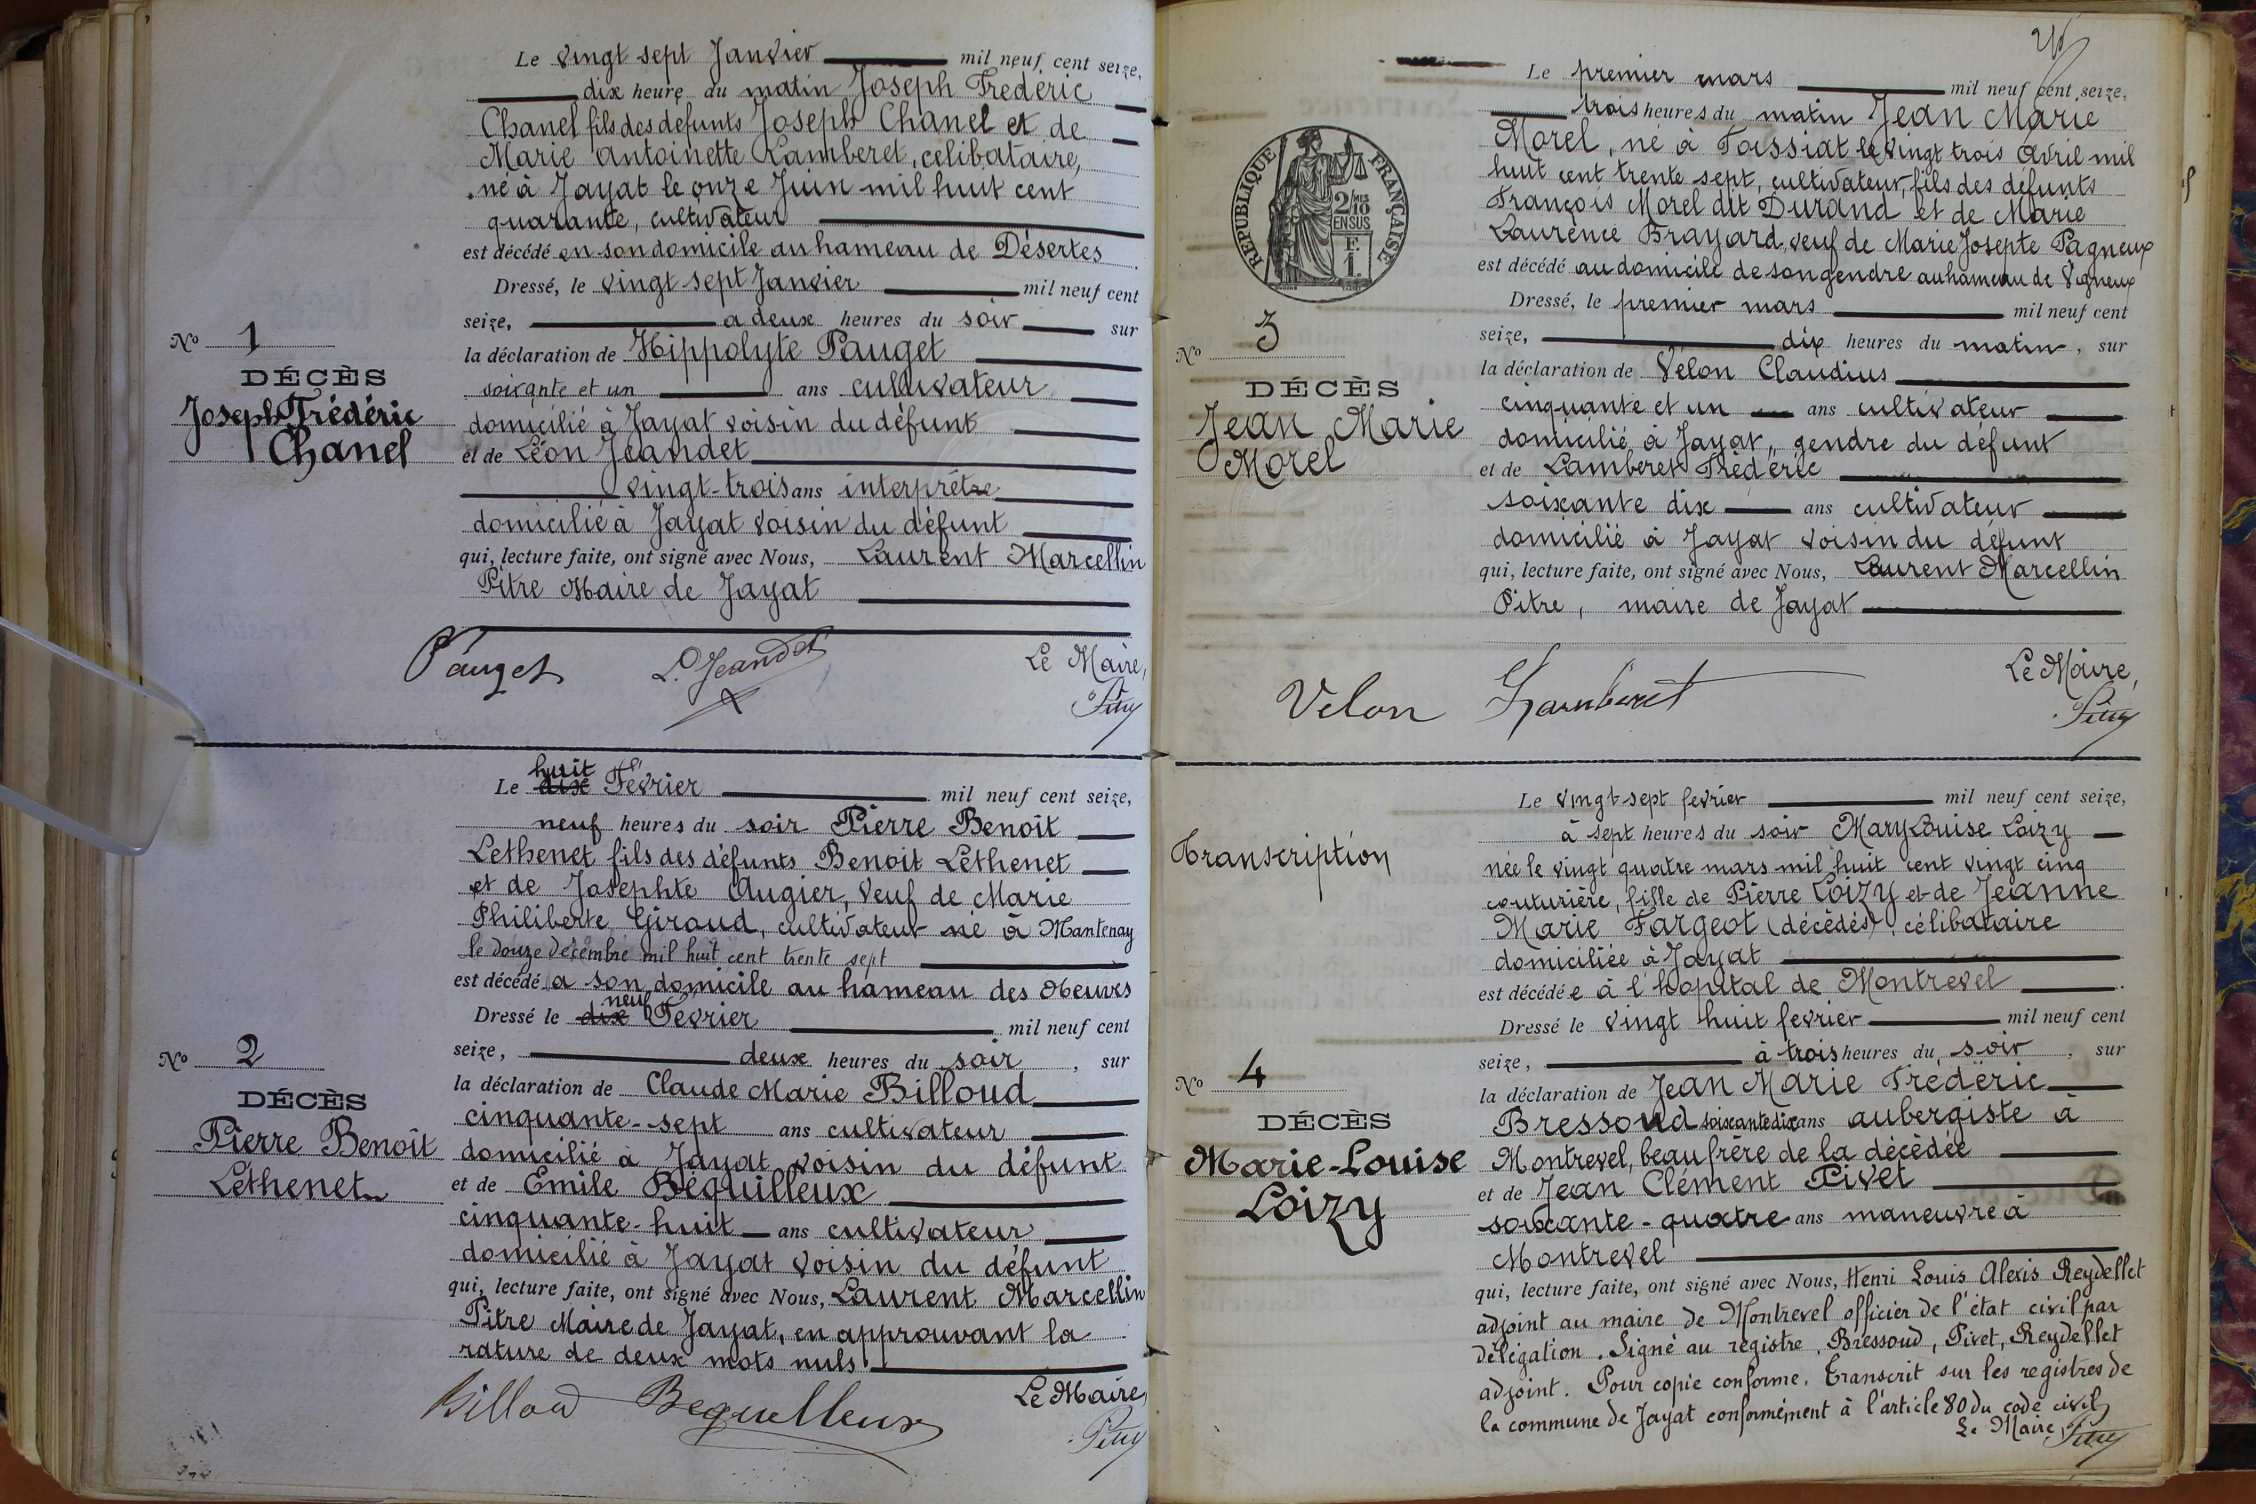 Le vingt sept Janvier mil neuf cent seize,
dix heure du matin Joseph Frédéric
Chanel fils des défunts Joseph Chanel et de
Marie Antoinette Lamberet, célibataire,
né à Jayat le onze Juin mil huit cent
quarante, cultivateur
est décédé en son domicile au hameau de Désertes
Dressé, le vingt sept Janvier mil neuf cent
seize, a deux heures du soir sur
la déclaration de Hippolyte Pauget
soixante et un ans cultivateur
domicilié à Jayat voisin du défunt
et de Léon Jeandet
vingt-trois ans interprétre
domicilié à Jayat voisin du défunt
qui, lecture faite, ont signé avec Nous, Laurent Marcellin
Pitre Maire de Jayat
Nº 1
DÉCÈS
Joseph Frédéric
Chanel
Pauget L. Jeandet Le Maire,
Pitre
Le huit dix Février mil neuf cent seize,
neuf heures du soir Pierre Benoît
Lethenet fils des défunts Benoit Léthenet
et de Josephte Augier, veuf de Marie
Philiberte Giraud, cultivateur né à Mantenay
le douze décembre mil huit cent trente sept
est décédé a son domicile au hameau des Oeuvres
Dressé le neuf dix Février mil neuf cent
seize, deux heures du soir, sur
la déclaration de Claude Marie Billoud
cinquante-sept ans cultivateur
domicilié à Jayat voisin du défunt
et de Emile Bèquilleux
cinquante-huit ans cultivateur
domicilié à Jayat voisin du défunt
qui, lecture faite, ont signé avec Nous, Laurent Marcellin
Pitre Maire de Jayat, en approuvant la
rature de deux mots nuls
Nº 2
DÉCÈS
Pierre Benoît
Léthenet
Billoud Bequilleux Le Maire,
Pitre
Le premier mars mil neuf cent seize,
trois heures du matin Jean Marie
Morel, né à Foissiat le vingt trois Avril mil
huit cent trente sept, cultivateur, fils des défunts
François Morel dit Durand et de Marie
Laurence Brayard, veuf de Marie Josepte Pagneux
est décédé au domicile de son gendre au hameau de Vigneux
Dressé, le premier mars mil neuf cent
seize, dix heures du matin, sur
la déclaration de Vélon Claudius
cinquante et un ans cultivateur
domicilié à Jayat, gendre du défunt
et de Lamberet Frédéric
soixante dix ans cultivateur
domicilié à Jayat voisin du défunt
qui, lecture faite, ont signé avec Nous, Laurent Marcellin
Pitre, maire de Jayat
REPUBLIQUE FRANÇAISE
2/10
EN SUS
Nº 3
DÉCÈS
Jean Marie
Morel
Velon Lamberet Le Maire,
Pitre
Le vingt-sept fevrier mil neuf cent seize,
à sept heures du soir Mary Louise Loizy
née le vingt quatre mars mil huit cent vingt cinq
couturière, fille de Pierre Loizy et de Jeanne
Marie Fargeot (décédés), célibataire
domiciliée à Jayat
est décédée à l'hopital de Montrevel
Dressé le vingt huit fevrier mil neuf cent
seize, à trois heures du soir, sur
la déclaration de Jean Marie Frédéric
Bressoud soixante dix ans aubergiste à
Montrevel, beau frère de la décédée
et de Jean Clément Pivet
soixante-quatre ans maneuvre à
Montrevel
qui, lecture faite, ont signé avec Nous, Henri Louis Alexis Reydellet
adjoint au maire de Montrevel officier de l'état civil par
délégation. Signé au registre, Bressoud, Pivet, Reydellet
adjoint. Pour copie conforme. Transcrit sur les registres de
la commune de Jayat conformément à l'article 80 du code civil
Le Maire, Pitre
Transcription
Nº 4
DÉCÈS
Marie-Louise
Loizy